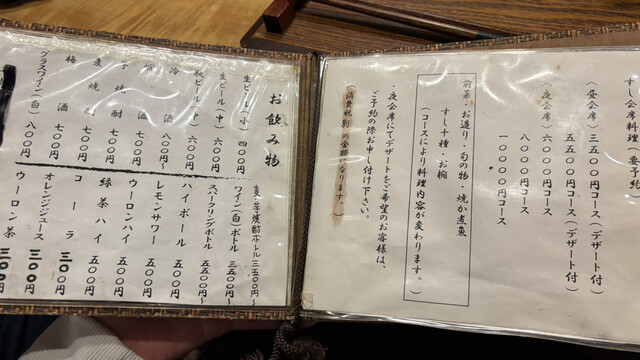 すし会席料理(要予約)
〈昼会席〉三五〇〇円コース(デザート付)
五五〇〇円コース(デザート付)
〈夜会席〉六〇〇〇円コース
八〇〇〇円コース
一〇〇〇〇円コース
前菜・お造り・旬の物・焼か煮魚
すし十種・お椀
(コースにより料理内容が変わります。)
・夜会席にてデザートをご希望のお客様は、
ご予約の際お申し付け下さい。
(消費税別の金額になります。)
お飲み物
生ビール(小)四〇〇円
生ビール(中)六〇〇円
瓶ビール(中)六〇〇円
冷酒八〇〇円〜
酒
焼酎七〇〇円
麦焼酎七〇〇円
梅酒七〇〇円
グラスワイン(白)八〇〇円
焼酎ボトル三五〇〇円〜
ワイン(白)ボトル三五〇〇円〜
スパークリングボトル五五〇〇円〜
ハイボール五〇〇円
レモンサワー五〇〇円
ウーロンハイ五〇〇円
緑茶ハイ五〇〇円
コーラ三〇〇円
オレンジジュース三〇〇円
ウーロン茶三〇〇円